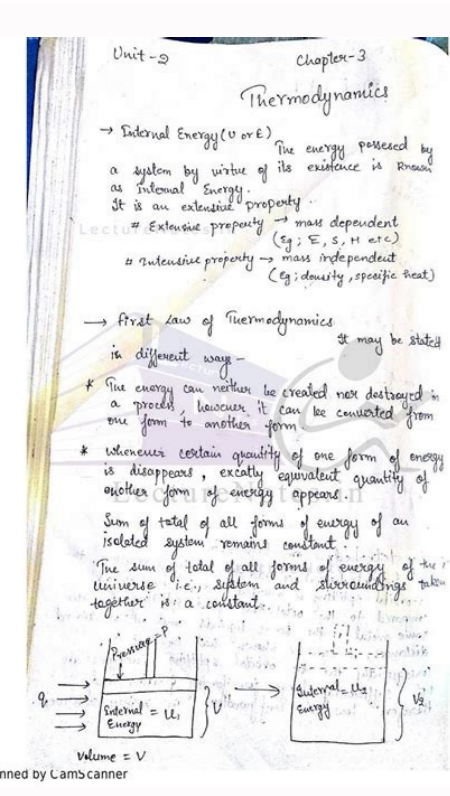 Unit-2 Chapter-3
Thermodynamics
→ Internal Energy (U or E)
The energy possesed by
a system by virtue of its existence is known
as Internal Energy.
It is an extensive property.
# Extensive property → mass dependent
(Eg; E, S, H etc)
# Intensive property → mass independent
(Eg; density, specific heat)
→ First Law of Thermodynamics
It may be stated
in different ways -
* The energy can neither be created nor destroyed in
a process, however it can be converted from
one form to another form.
* whenever certain quantity of one form of energy
is disappears, excatly equivalent quantity of
another form of energy appears.
LectureNotes.in
Sum of total of all forms of energy of an
isolated system, remains constant.
The sum of total of all forms of energy of the
universe i.e., system and surroundings taken
together is a constant.
Pressure = P
q
Internal = U1
Energy
V
Internal = U2
Energy
V2
Volume = V
nned by CamScanner